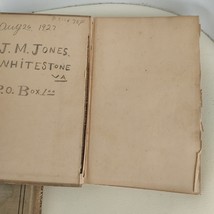 Aug 24, 1927
J. M. JONES.
WHITESTONE
VA
P.O. BOX